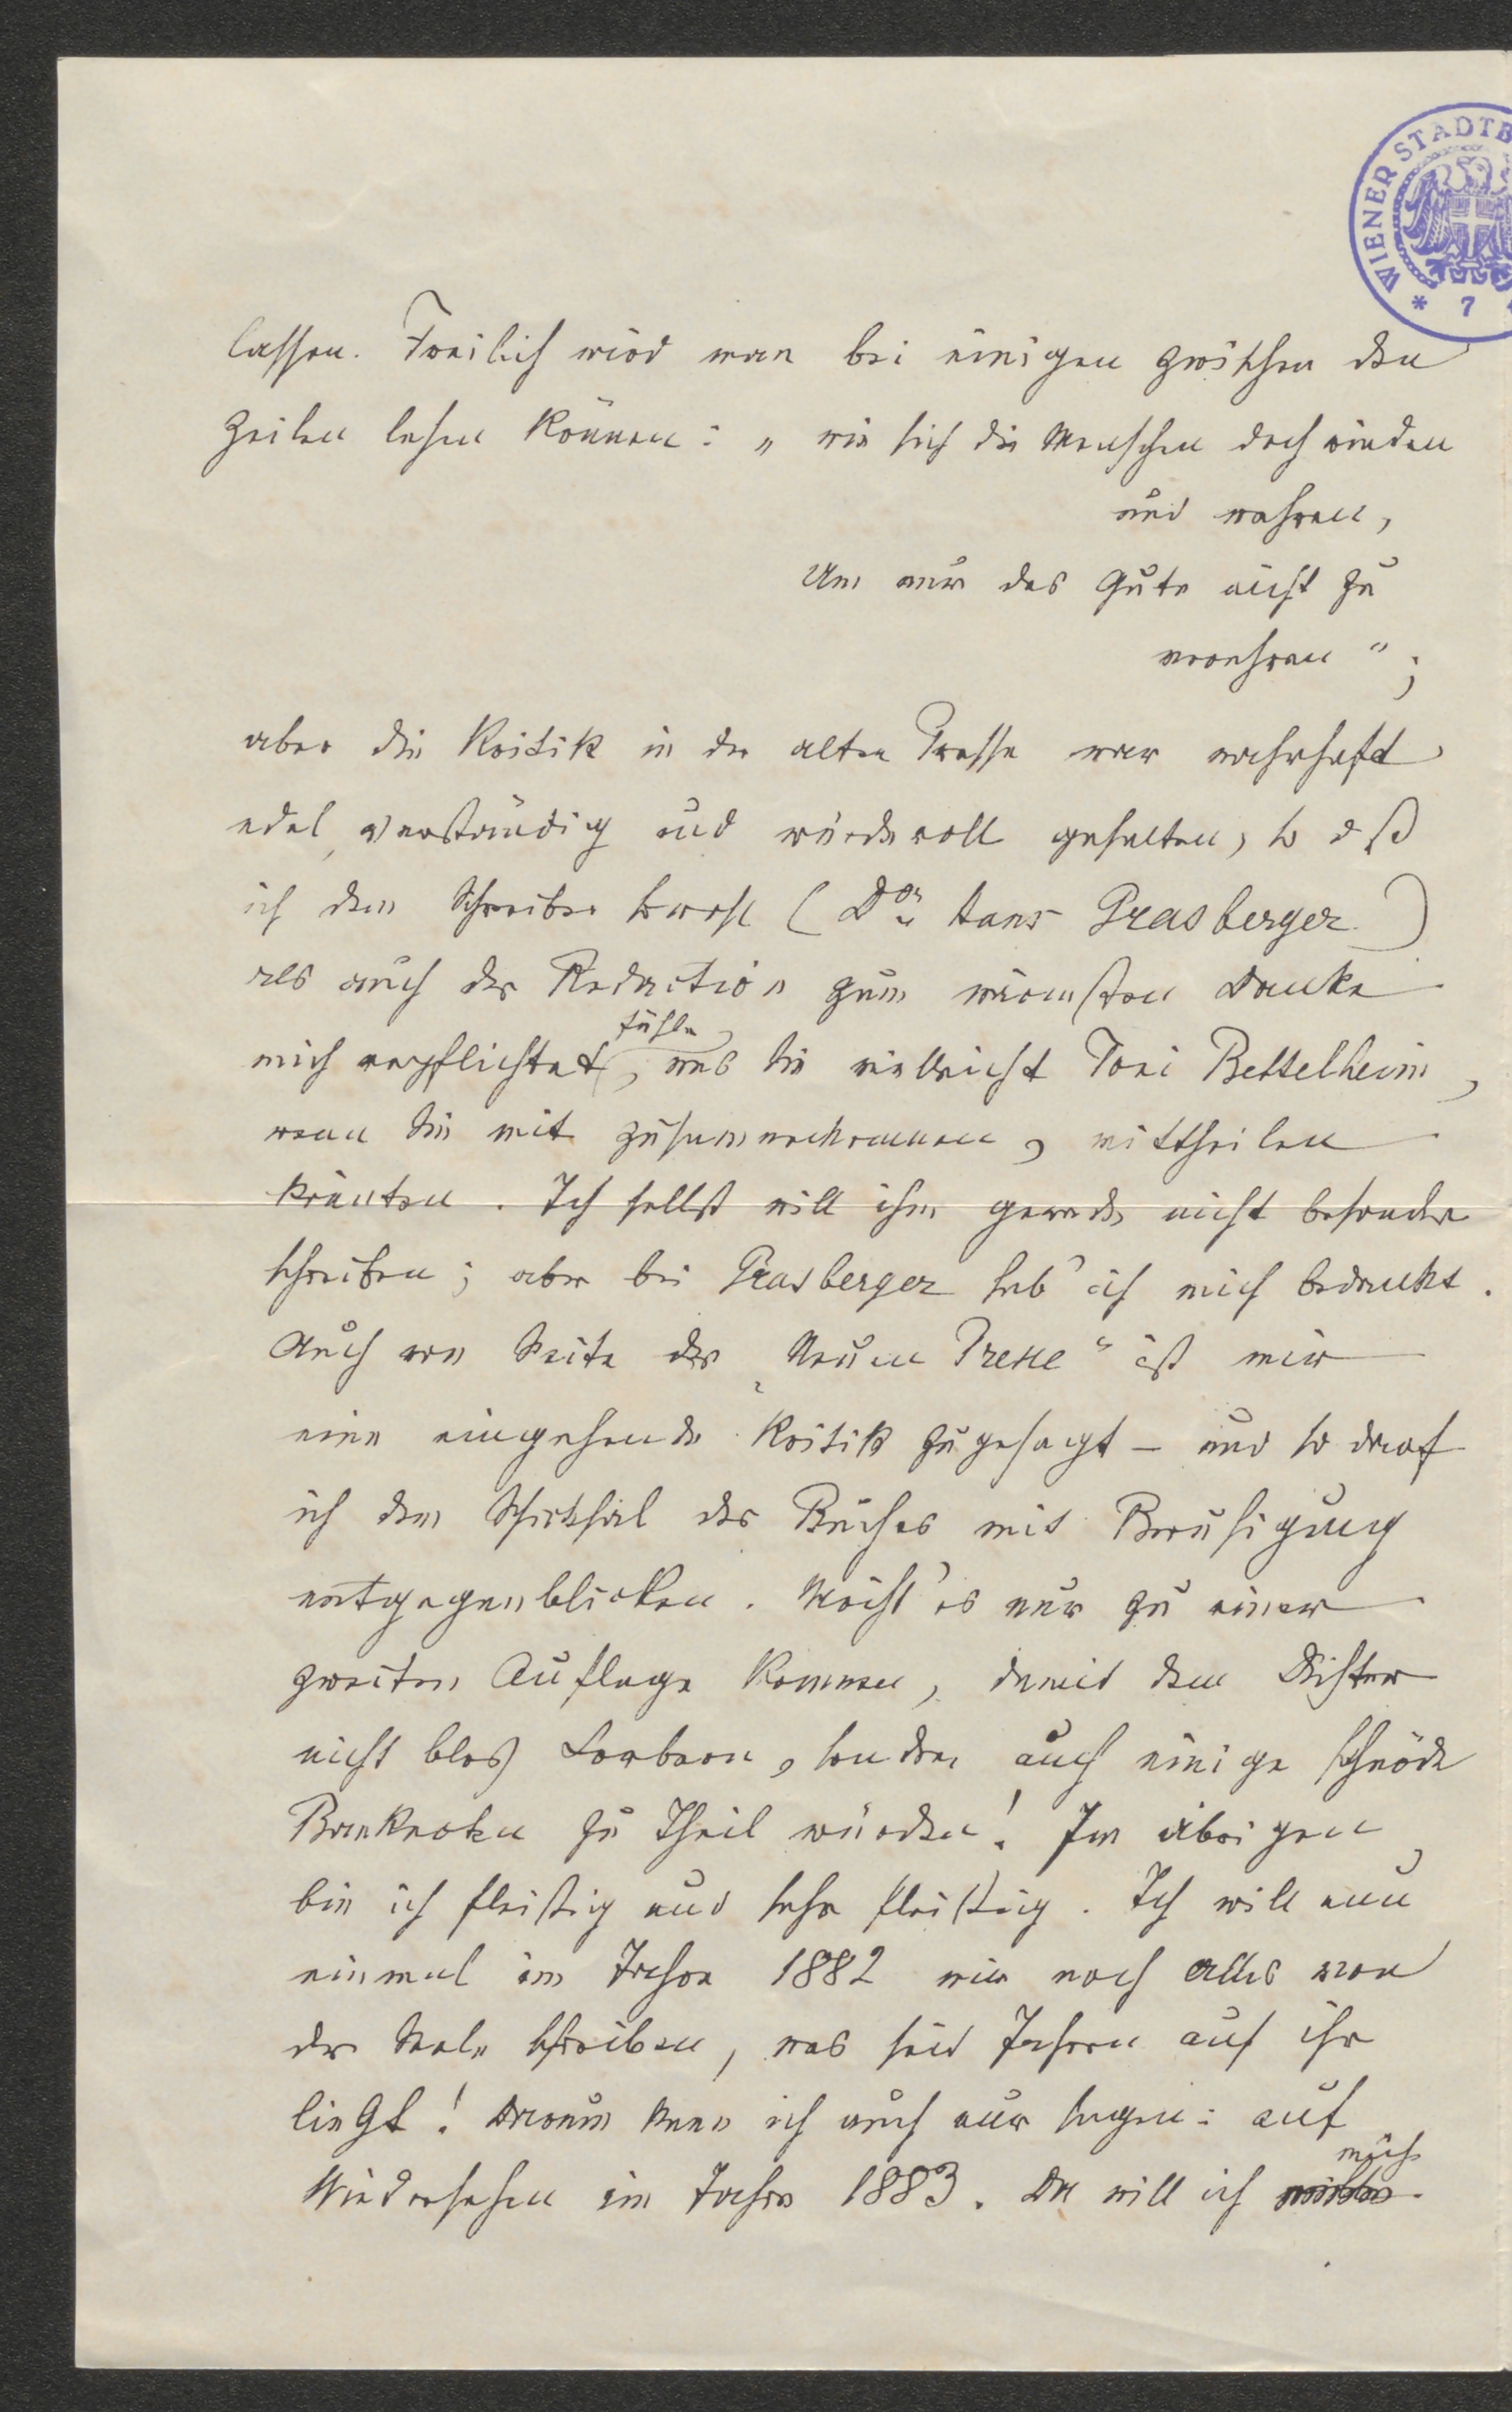 WIENER STADTB
* 7 4
lassen. Freilich wird man bei einigen zwischen den
Zeilen lesen können: „wie sich die Menschen doch winden
und wahren,
Um nur das Gute nicht zu
verehren“;
aber die Kritik in der alten Presse war wahrhaft
edel, verständig und würdevoll gehalten, so daß
ich dem Schreiber sowohl (Dor Hans Grasberger)
als auch der Redaction zum wärmsten Danke
mich verpflichtet fühle, was Sie vielleicht Toni Bettelheim,
wenn Sie mit zusammenkommen, mittheilen
könnten. Ich selbst will ihm gerade nicht besonders
schreiben; aber bei Grasberger hab' ich mich bedankt.
Auch von Seite der „Neuen Presse“ ist mir
eine eingehende Kritik zugesagt – und so darf
ich dem Schicksal des Buches mit Beruhigung
entgegenblicken. Möcht' es nur zu einer
zweiten Auflage kommen, damit dem Dichter
nicht blos Lorbeern, sondern auch einige schnöde
Banknoten zu Theil würden! Im übrigen
bin ich fleißig und sehr fleißig. Ich will nun
einmal im Jahre 1882 mir noch alles von
der Seele schreiben, was seit Jahren auf ihr
liegt! Darum kann ich auch nur sagen: auf
Wiedersehen im Jahre 1883. Da will ich mich